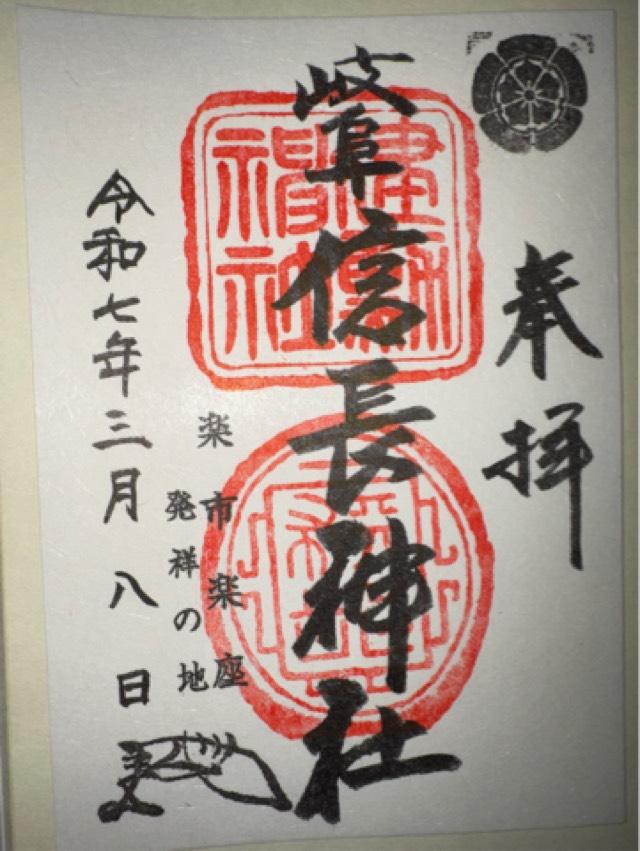 奉拝
岐阜信長神社
建勲神社
楽市楽座
発祥の地
令和七年三月八日